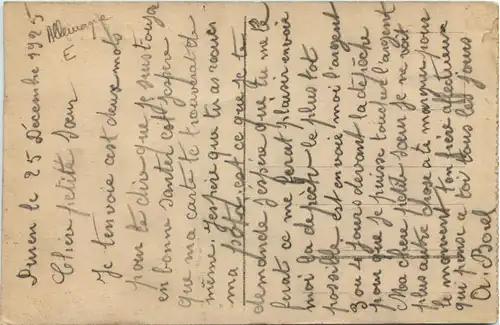 Allemagne
Duren le 25 Décembre 1925
Chère petite Sœur
Je t'envoie cest deux mots
pour te dire que je suis toujour
en bonne santer est j'espère
que ma carte te trouverat de
même. J'espère que tu as recuer
ma photo, est ce que je te
demande j'espère que tu me le
ferat ce me ferat plaisir envoie
moi la depeche le plus tot
possible est envoie moi l'argent
3 ou 4 jours devant la depèche
pour que je puisse toucher l'argent
Ma chère petite sœur je ne voit
plus autre chose a te marquer pour
le moment ton frère affectueux
qui pense a toi tous les jours
A. Borel